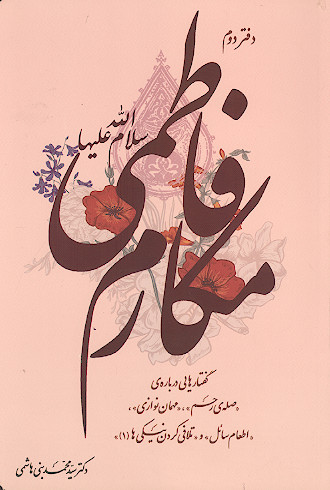 دفتر دوم
مکارم فاطمی
سلام الله علیها
گفتارهایی درباره‌ی
«صله‌ی رحم»، «مهمان نوازی»،
«اطعام سائل» و «تلافی کردن نیکی‌ها (۱)»
دکتر سید محمد بنی هاشمی